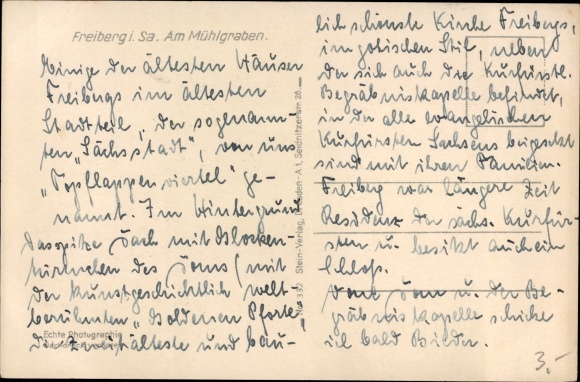 Freiberg i. Sa. Am Mühlgraben.
Einige der ältesten Häuser
Freibergs im ältesten
Stadtteil, der sogenann-
ten „Sächsstadt", von uns
„Topflappenviertel" ge-
nannt. Im Hintergrund
das spitze Dach mit Glocken-
türmchen des Doms (mit
der kunstgeschichtlich welt-
berühmten „Goldenen Pforte"
die zweitälteste und bau-
Echte Photographie
Stein-Verlag, Dresden-A 1, Seidnitzerstr. 26
No 332
lich schönste Kirche Freibergs,
im gotischen Stil, neben
der sich auch die Kurfürstl.
Begräbniskapelle befindet,
in der alle evangelischen
Kurfürsten Sachsens beigesetzt
sind mit ihren Familien.
Freiberg war längere Zeit
Residenz der sächs. Kurfür-
sten u. besitzt auch ein
Schloß.
Vom Dom u. der Be-
gräbniskapelle schicke
ich bald Bilder.
3,-